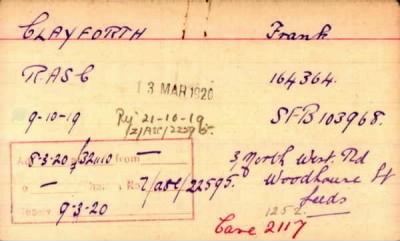 CLAYFORTH Frank
RASC 164364.
13 MAR 1920
9-10-19 Rej 21-10-19 SFB 103968.
8-3-20 from — 3, North West. Rd
— No 7/ABC/22595. Woodhouse St
Leeds
9-3-20 1252.
Case 2117